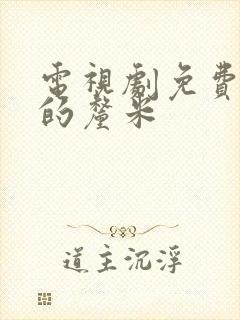 電視劇免費
的釐米
道主沉浮